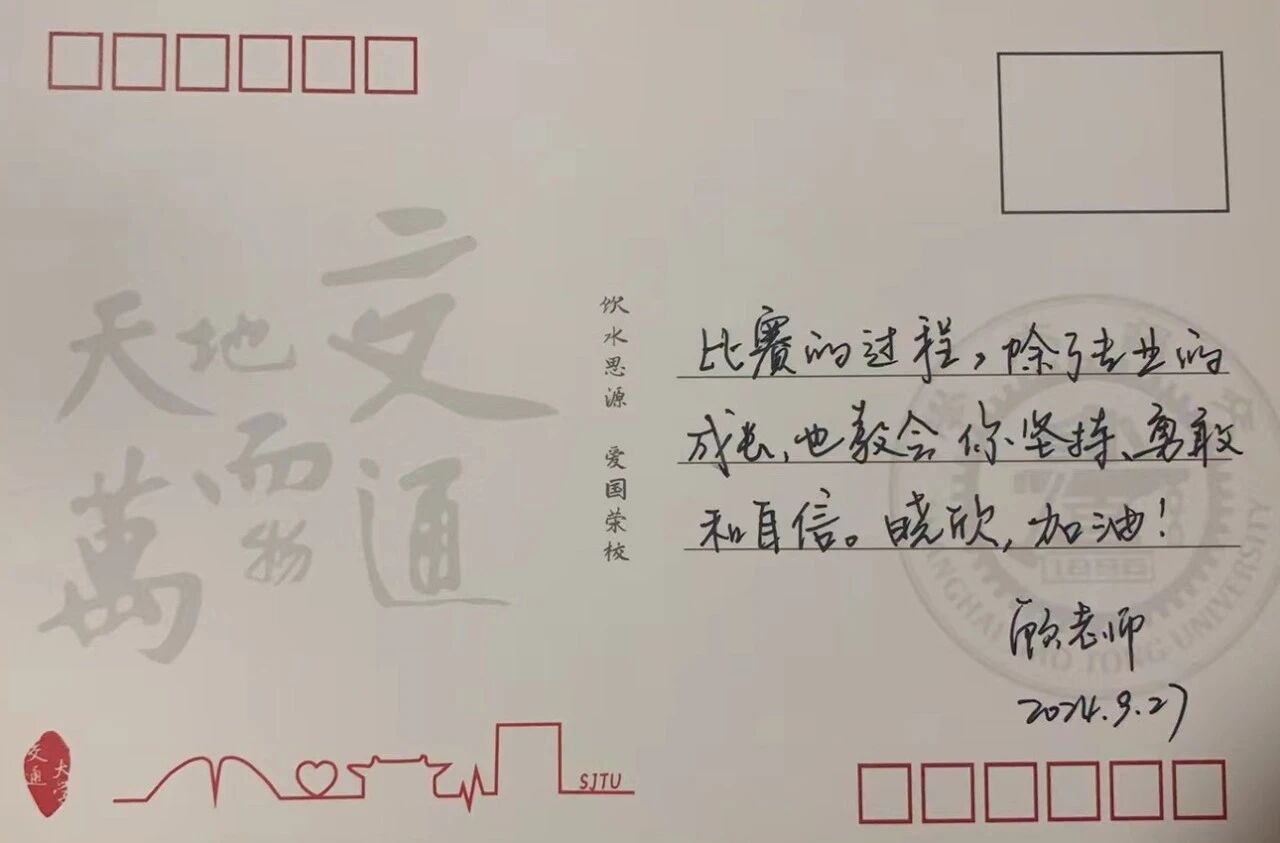 天地交而萬物通
饮水思源 爱国荣校
比赛的过程,除了专业的
成长,也教会你坚持、勇敢
和自信。晓欣,加油!
顾老师
2024.9.27
1896
SHANGHAI JIAO TONG UNIVERSITY
交通大学
SJTU